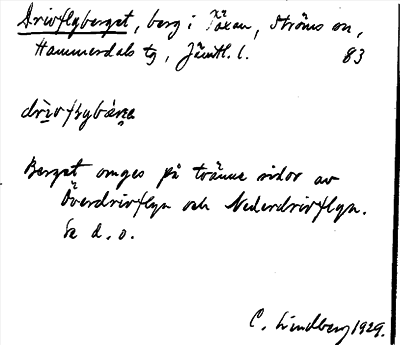 Drivflyberget, berg i Täxan, Ströms sn,
Hammerdals tg, Jämtl. l. 83
Berget omges på tvänne sidor av
Överdrivflyn och Nederdrivflyn.
Se d. o.
C. Lindberg 1929.